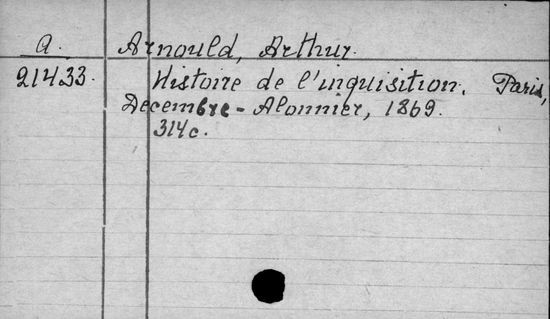 A. Arnould, Arthur.
21433. Histoire de l'inquisition. Paris,
Decembre-Alonnier, 1869.
314c.